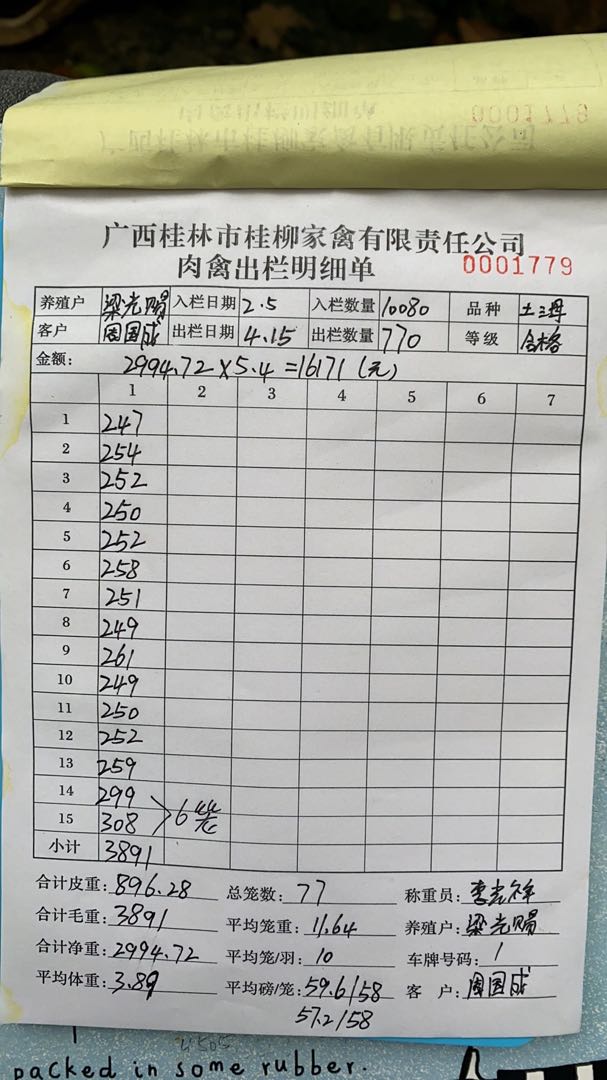 0001779
广西桂林市桂柳家禽有限责任公司
肉禽出栏明细单 0001779
养殖户 梁光赐 入栏日期 2.5 入栏数量 10080 品种 土三母
客户 周国成 出栏日期 4.15 出栏数量 770 等级 合格
金额: 2994.72×5.4=16171(元)
1 2 3 4 5 6 7
1 247
2 254
3 252
4 250
5 252
6 258
7 251
8 249
9 261
10 249
11 250
12 252
13 259
14 299
15 308 >6笼
小计 3891
合计皮重: 896.28 总笼数: 77 称重员: 李光祥
合计毛重: 3891 平均笼重: 11.64 养殖户: 梁光赐
合计净重: 2994.72 平均笼/羽: 10 车牌号码: 1
平均体重: 3.89 平均磅/笼: 59.6/58 客户: 周国成
57.2/58
packed in some rubber.